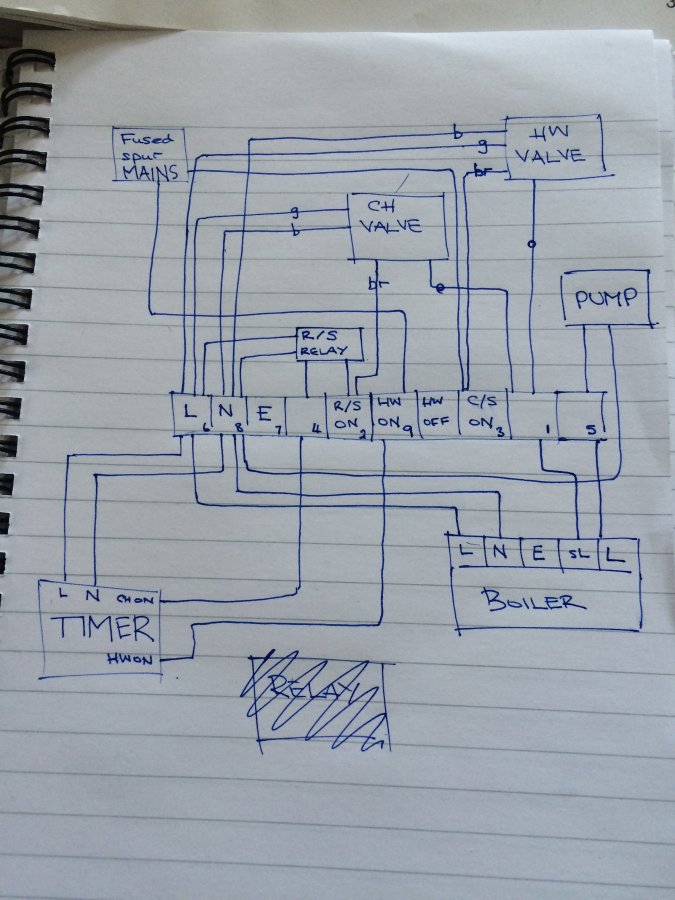 Fused
spur
MAINS
b
g
br
HW
VALVE
g
b
CH
VALVE
br
o
o
PUMP
R/S
RELAY
L 6
N 8
E 7
4
R/S
ON 2
HW
ON 9
HW
OFF
C/S
ON 3
1
5
L N CH ON
TIMER
HW ON
L N E SL L
BOILER
RELAY